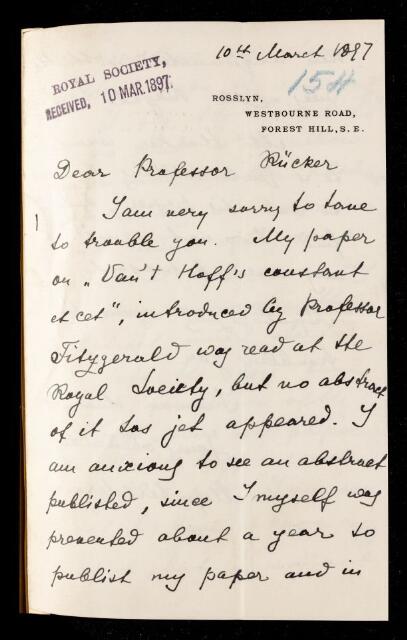 10th March 1897
ROYAL SOCIETY,
RECEIVED, 10 MAR.1897.
154
ROSSLYN,
WESTBOURNE ROAD,
FOREST HILL, S. E.
Dear Professor Rücker
I am very sorry to have
to trouble you. My paper
on „Van't Hoff's constant
et cet", introduced by Professor
Fitzgerald was read at the
Royal Society, but no abstract
of it has jet appeared. I
am anxious to see an abstract
published, since I myself was
prevented about a year to
publish my paper and in